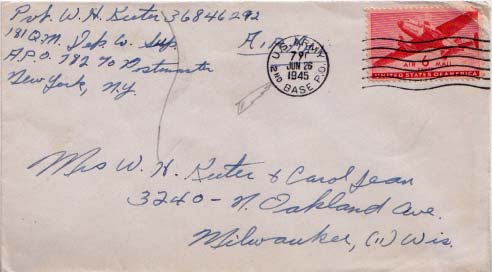 Pvt. W. H. Keeter 36846292
181 Q.M. Dep. Co. Sup.
A.P.O. 782 % Postmaster
New York, N.Y.
Air
U.S. ARMY
JUN 26
1945
2ND BASE P.O.
6
AIR MAIL
UNITED STATES OF AMERICA
Mrs W. H. Keeter & Carol Jean
3240 - N. Oakland Ave.
Milwaukee, (11) Wis.